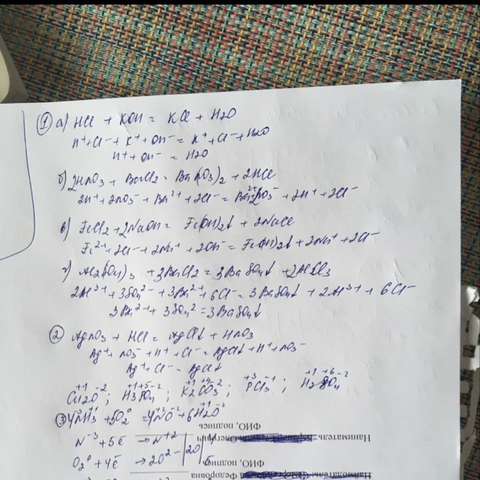 ① а) HCl + KOH = KCl + H2O
H⁺+Cl⁻ + K⁺+OH⁻ = K⁺+Cl⁻+H2O
H⁺+OH⁻ = H2O
б) 2HNO3 + BaCl2 = Ba(NO3)2 + 2HCl
2H⁺+2NO3⁻ + Ba²⁺ + 2Cl⁻ = Ba²⁺ +2H⁺ +2Cl⁻
в) FeCl2 + 2NaOH = Fe(OH)2↓ + 2NaCl
Fe²⁺+2Cl⁻ + 2Na⁺ + 2OH⁻ = Fe(OH)2↓ + 2Na⁺ + 2Cl⁻
г) Al2(SO4)3 + 3BaCl2 = 3BaSO4↓ + 2AlCl3
2Al³⁺+3SO4²⁻+3Ba²⁺+6Cl⁻ = 3BaSO4↓ + 2Al³⁺ + 6Cl⁻
3Ba²⁺ + 3SO4²⁻ = 3BaSO4↓
② AgNO3 + HCl = AgCl↓ + HNO3
Ag⁺ + NO3⁻ + H⁺ + Cl⁻ = AgCl↓ + H⁺ + NO3⁻
Ag⁺ + Cl⁻ = AgCl↓
Cu2O; H3PO4; K2CO3; PCl3; H2SO4
③ 4NH3 + 5O2 = 4NO + 6H2O
ФИО, подпись
N⁻³ + 5ē → N⁺² 4
Наниматель
O2⁰ + 4ē → 2O⁻² 20 5
ФИО, подпись